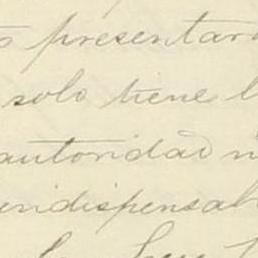 s presentara
solo tiene l
autoridad n
indispensabl